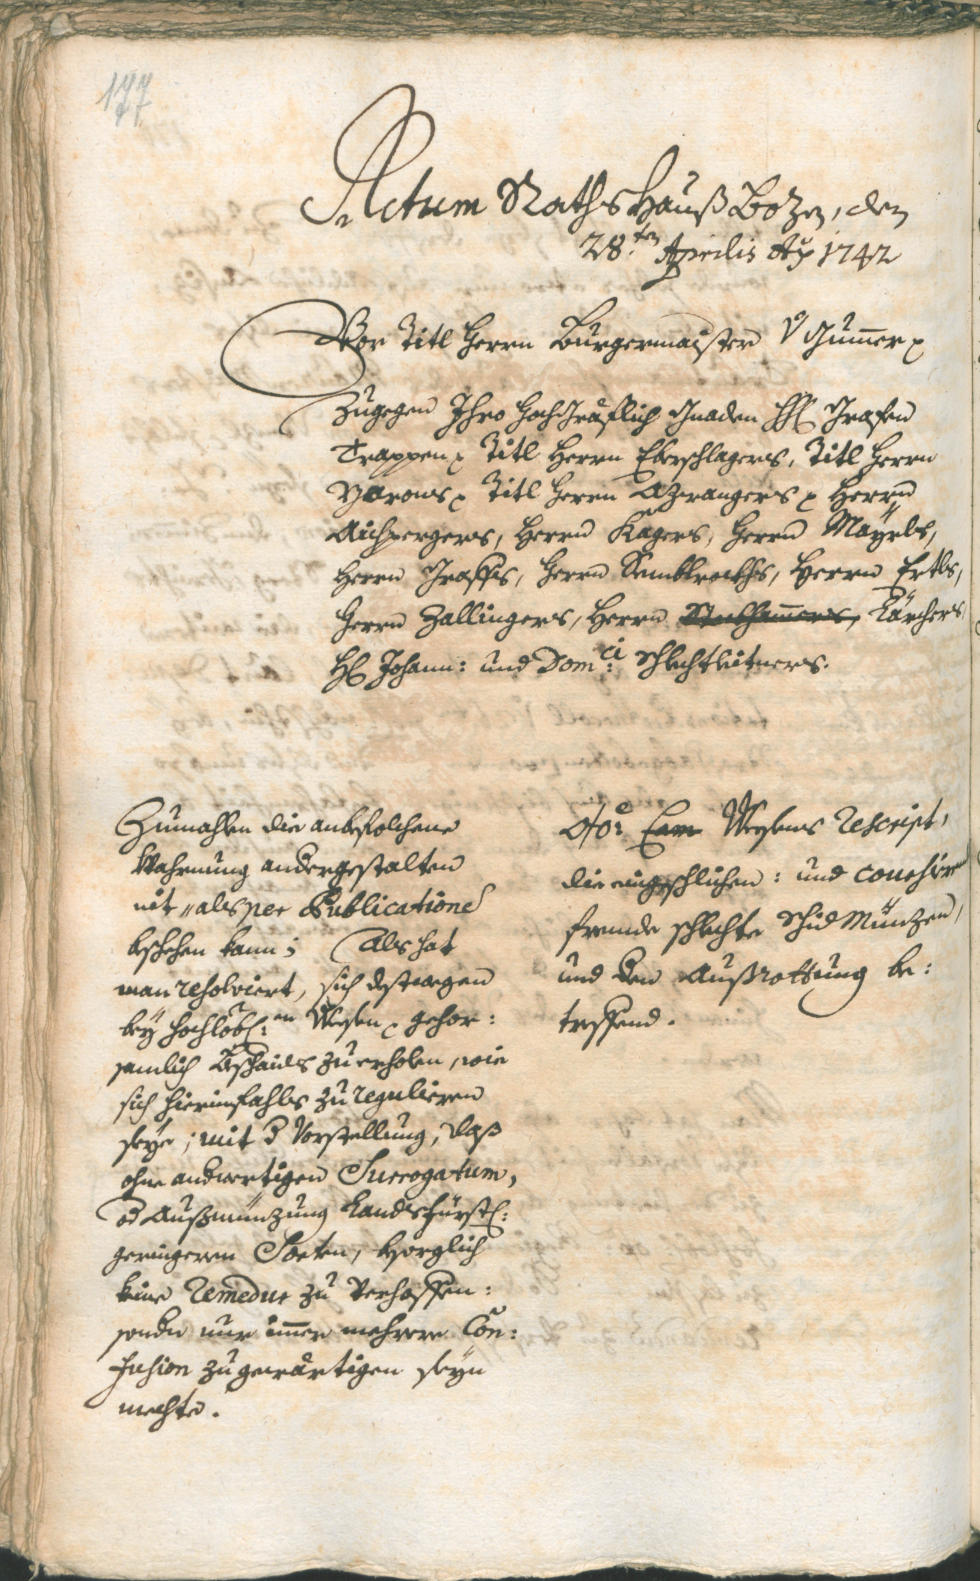 177
Actum Raths Hauß Bozen, den
28.ten Aprilis Ao 1742
Vor Titl Herrn Burgermaister V. Gum̄er
Zugegen Ihro Hochgräflich Gnaden H: Grafen
Trappen Titl Herrn Eberschlagers, Titl Herrn
Titl Herrn Azwangers Herrn
Aichpergers, Herrn Kagers, Herrn Mayrls,
Herrn Graffs, Herrn Herrn Ertls,
Herrn Zallingers, Herrn Kärchers
H: Johann: und Dom:ci Schlechtleitners.
Zumahlen die anbefolchene
Wahrnung andergestalten
nit als per Publicatione
beschehen kann; Als hat
man resolviert, sich destwegen
bey Hochlöbl:en Wesen gehor:
samlich Beschaids zu erholen, wie
sich hierinfahls zu regulieren
seye; mit d Vorstellung, daß
ohne andwertigen Surrogatum,
od Außmünzung Landsfürstl:
geringeren Sorten, besorglich
keine Remedur zu Verhoffen:
sondern nur im̄er mehrere Con:
fusion zu gewärtigen seyn
mechte.
Wesens Rescript,
die eingeschlichen: und
fremde schlechte Schid Münzen,
und den Außrottung be:
treffend.